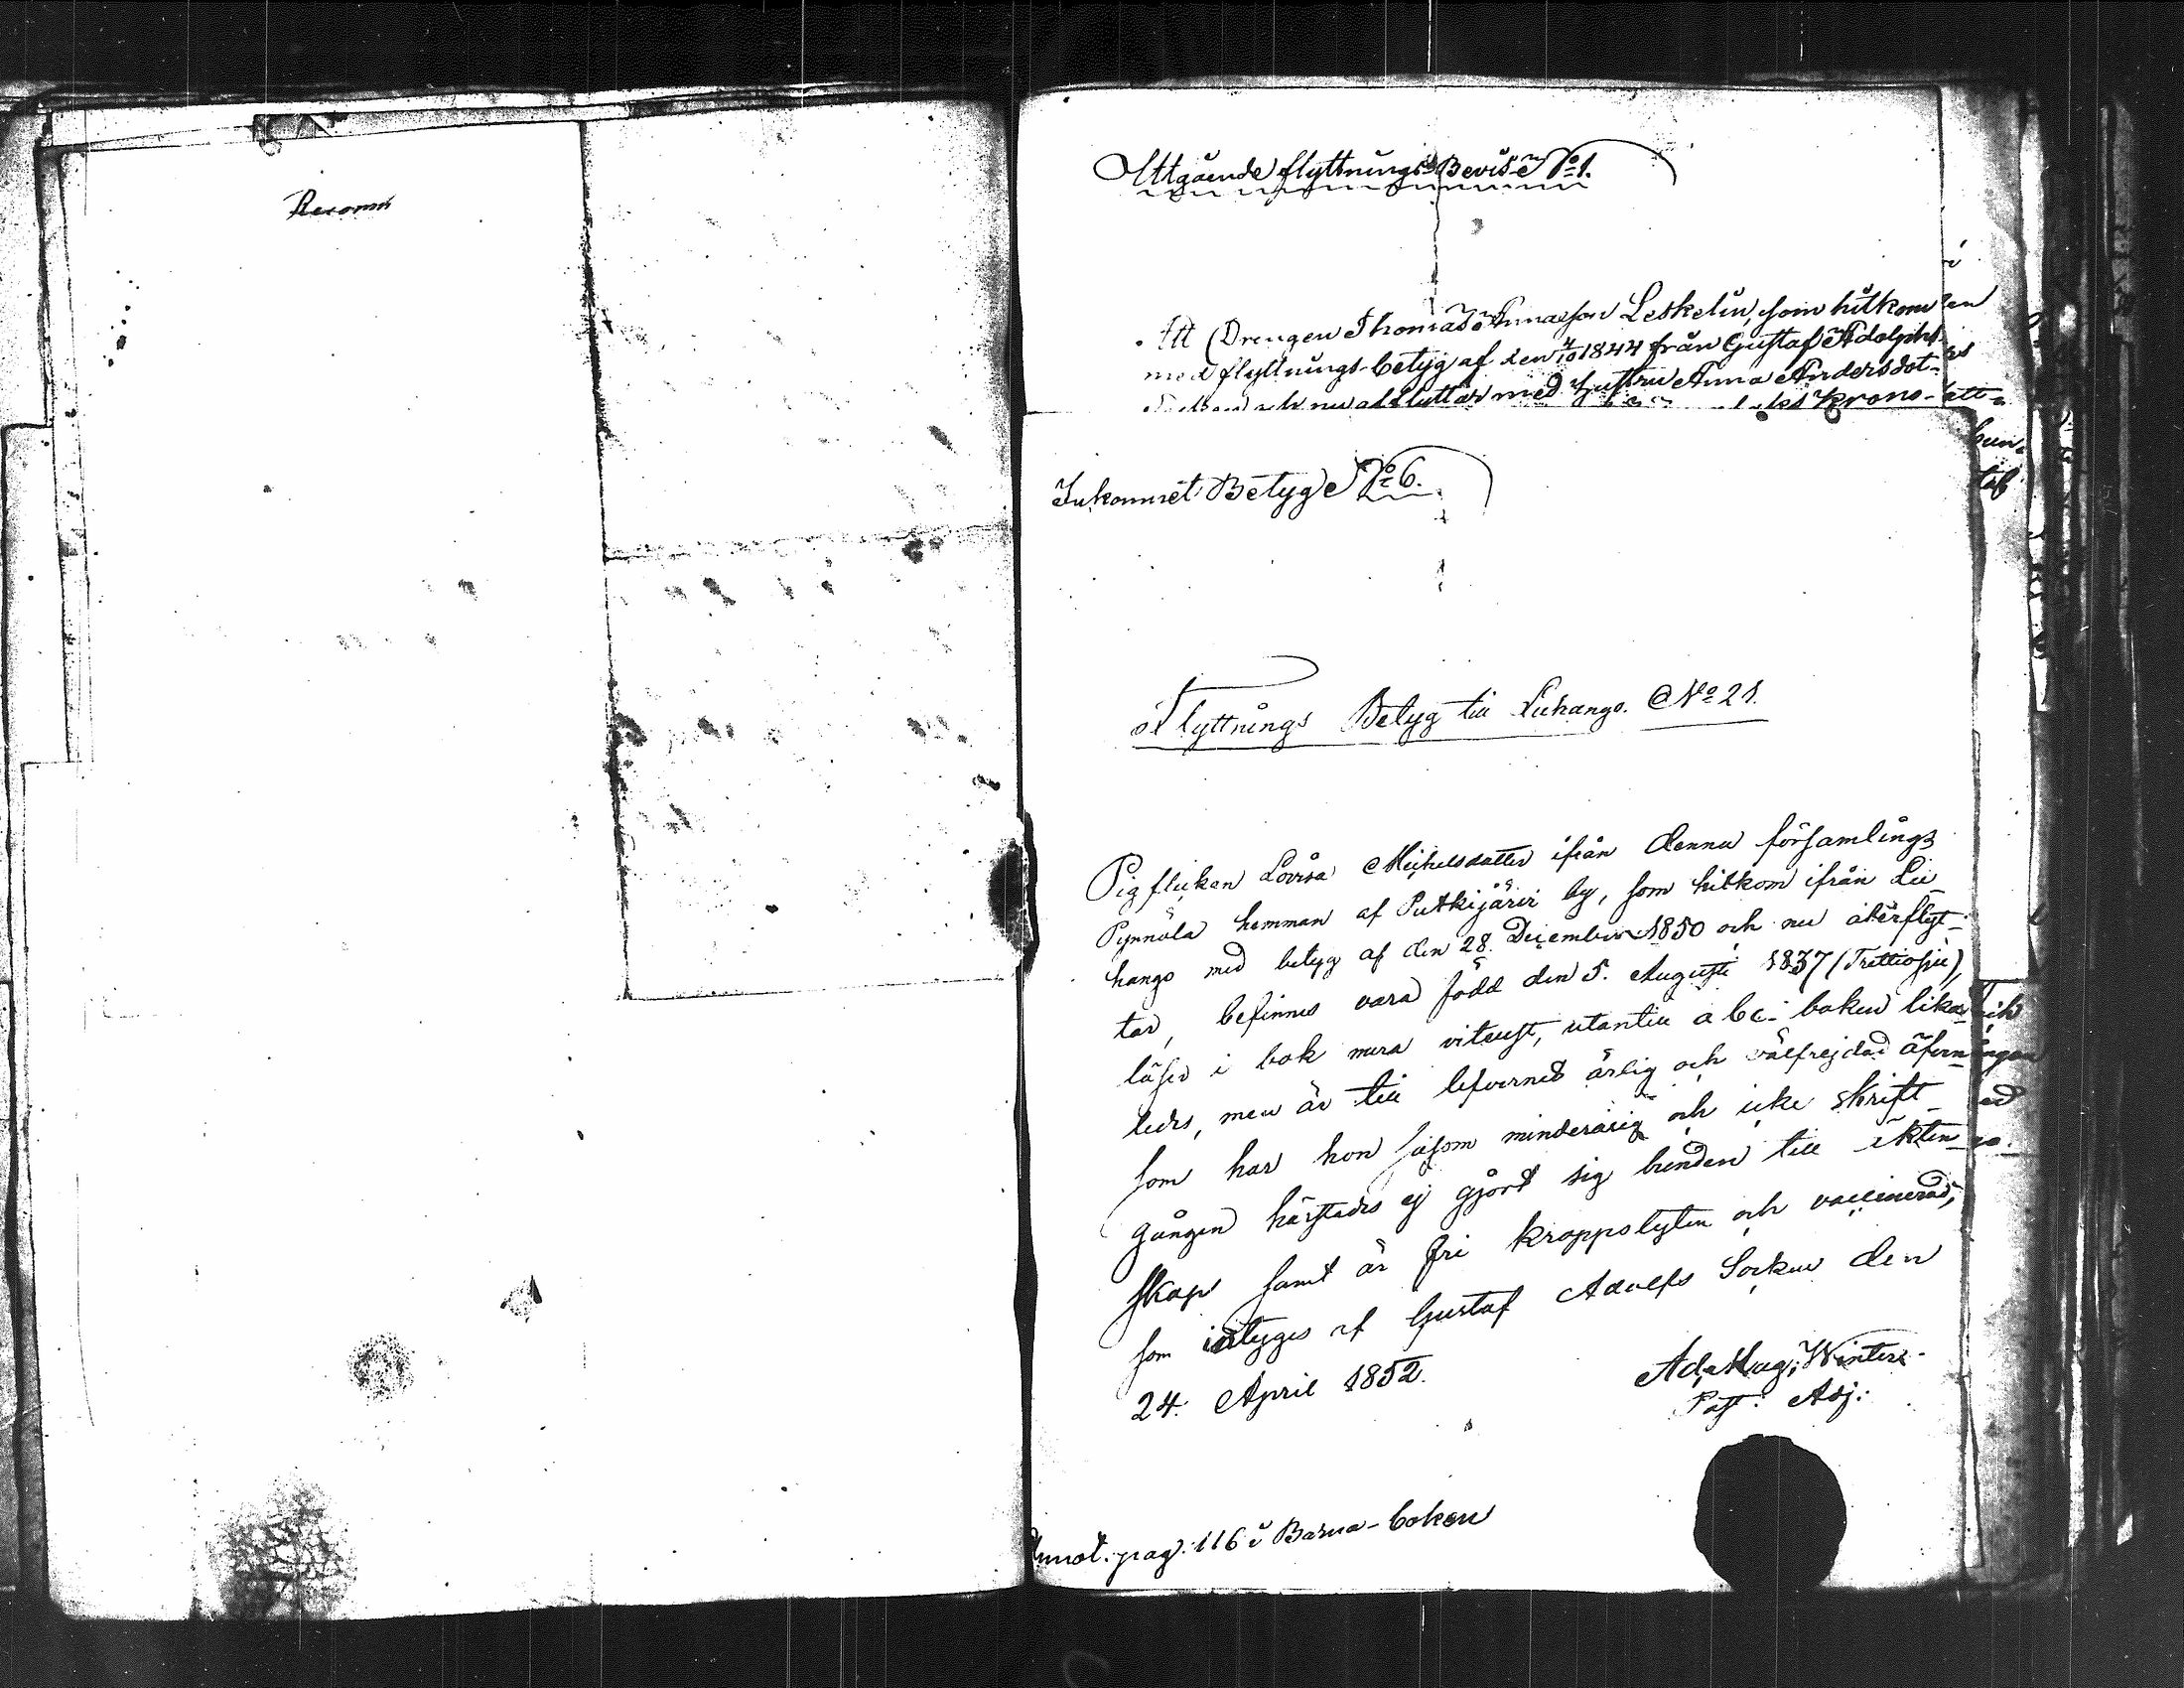 Recomm
Utgående flyttnings-Bevis No 1.
Att Drengen Thomas Annaeson Leskelin, som hitkom
med flyttnings-betyg af den 4/10 1844 från Gustaf Adolphs
nu afflyttar med hustru Anna Andersdot-
Krono-
Inkommet Betyg No 6.
Flyttnings Betyg till Luhango. No 21.
Pigflickan Lovisa Michelsdotter ifrån denna församlings
Pynnölä hemman af Putkijärvi by, som hitkom ifrån Lu-
hango med betyg af den 28. December 1850 och nu återflyt-
tar, befinnes vara född den 5. Augusti 1837 (Trettiosju),
läser i bok nära vitsust, utantill abc-boken lika-
ledes, men är till lefvernet ärlig och välfrejdad äfven-
som har hon såsom minderårig och icke skrift-
gången härstädes ej gjort sig bunden till ekten-
skap samt är fri kroppslyten och vaccinerad;
som intygas af Gustaf Adolfs Socken den
24. April 1852.
Ad. Aug. Winter.
Past: Adj:
Annot. pag. 116 i Barna-boken